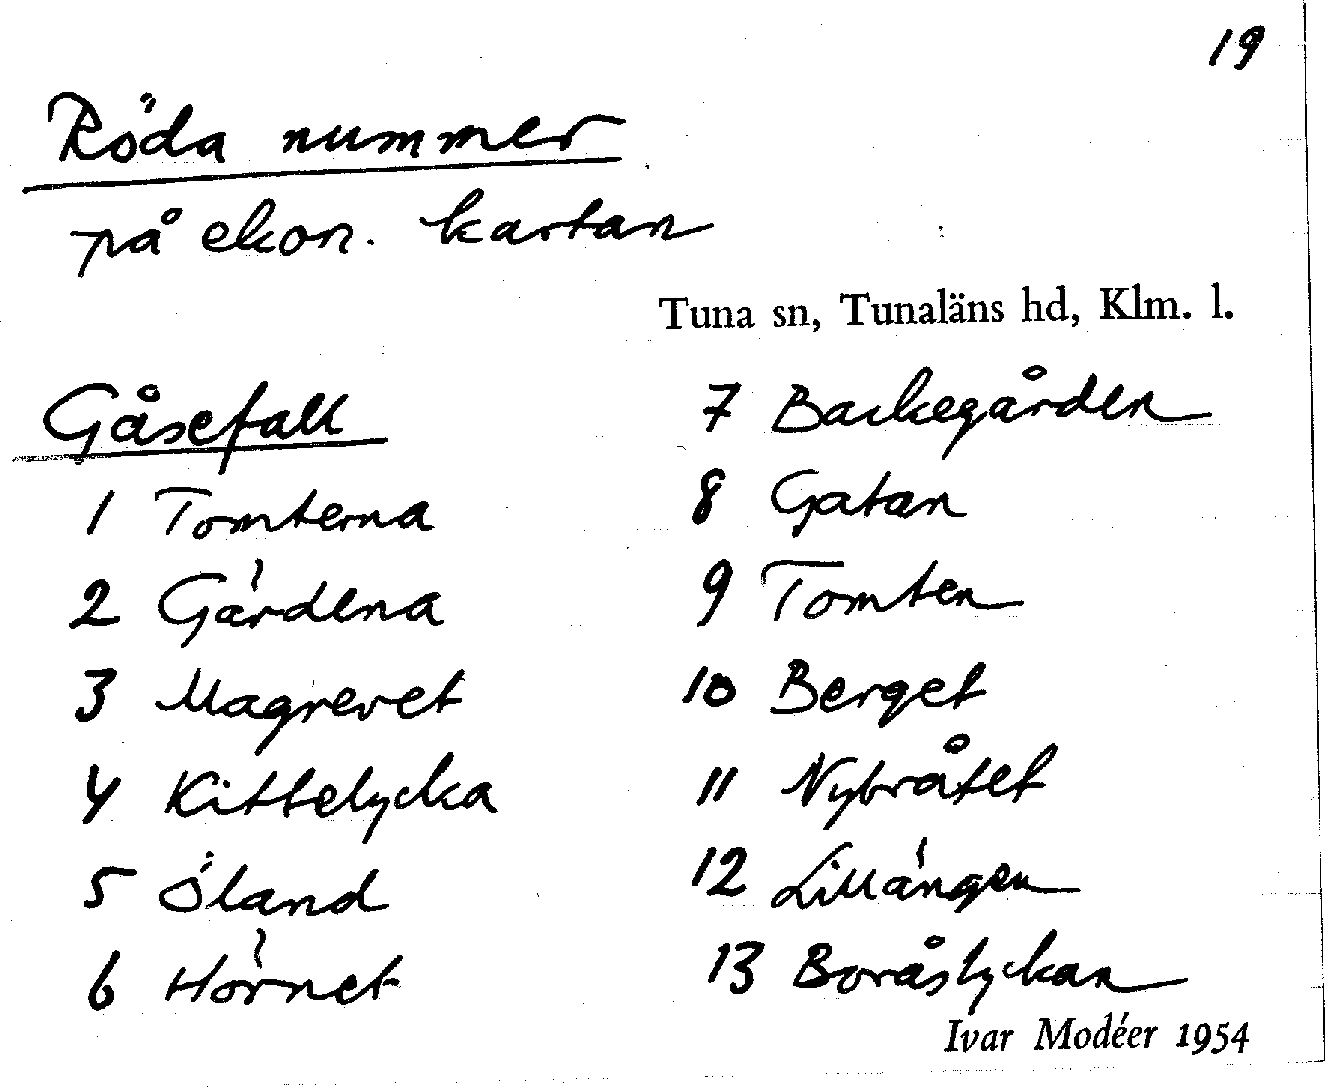 19
Röda nummer
på ekon. kartan
Tuna sn, Tunaläns hd, Klm. l.
Gåsefall
1 Tomterna
2 Gärdena
3 Magrevet
4 Kittelycka
5 Öland
6 Hörnet
7 Backegården
8 Gatan
9 Tomten
10 Berget
11 Nybråtet
12 Lillängen
13 Boråslyckan
Ivar Modéer 1954